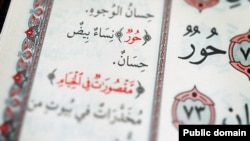 حِسَانُ الْوُجُوهِ.
﴿حُورٌ﴾ نِسَاءٌ بِيضٌ
حِسَانٌ.
﴿مَقْصُورَاتٌ فِي الْخِيَامِ﴾
مُخَدَّرَاتٌ فِي بُيُوتٍ مِن
حُورٌ
٧٣
Public domain